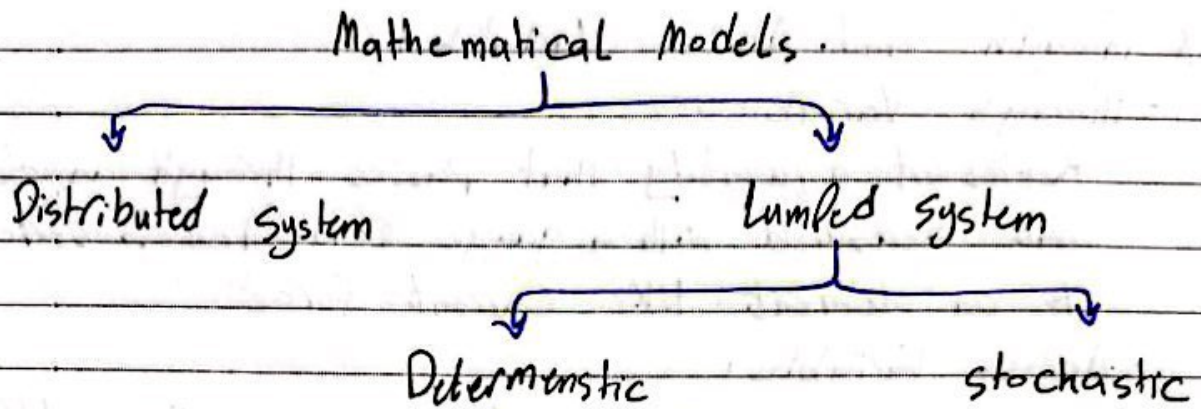 Mathematical Models.
Distributed system Lumped system
Determenstic stochastic